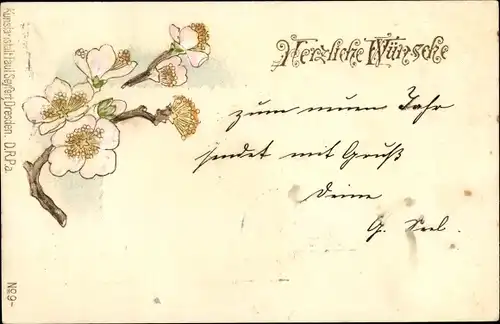 Herzliche Wünsche
zum neuen Jahr
sendet mit Gruß
Deine
G. Seel.
Kunstanstalt Paul Seyfert Dresden. D.R.P.a.
No 9-